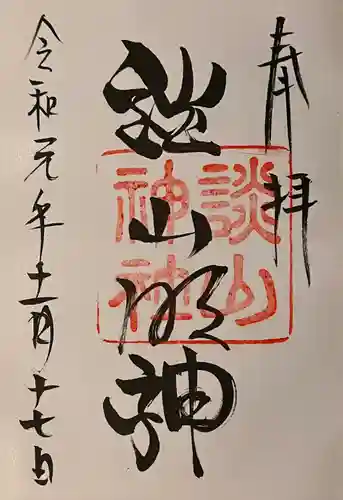 奉拝
談山明神
談山
神社
令和元年十一月十七日